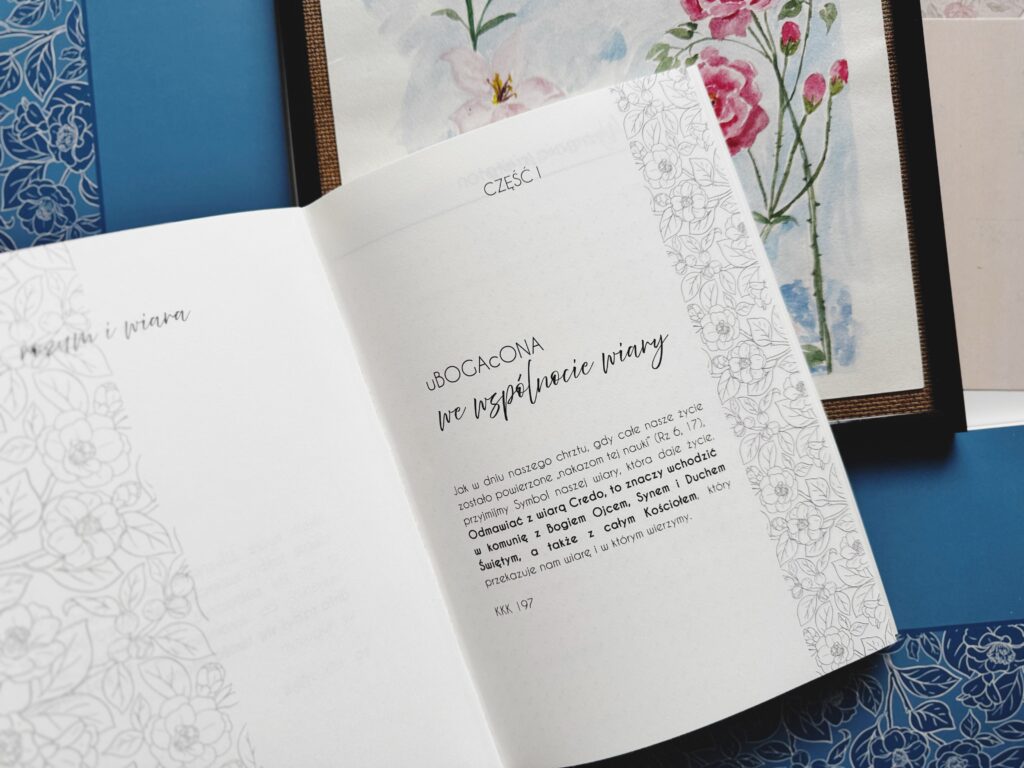 rozum i wiara
CZĘŚĆ I
uBOGAcONA
we wspólnocie wiary
Jak w dniu naszego chrztu, gdy całe nasze życie
zostało powierzone „nakazom tej nauki” (Rz 6, 17),
przyjmijmy Symbol naszej wiary, która daje życie.
Odmawiać z wiarą Credo, to znaczy wchodzić
w komunię z Bogiem Ojcem, Synem i Duchem
Świętym, a także z całym Kościołem, który
przekazuje nam wiarę i w którym wierzymy.
KKK 197